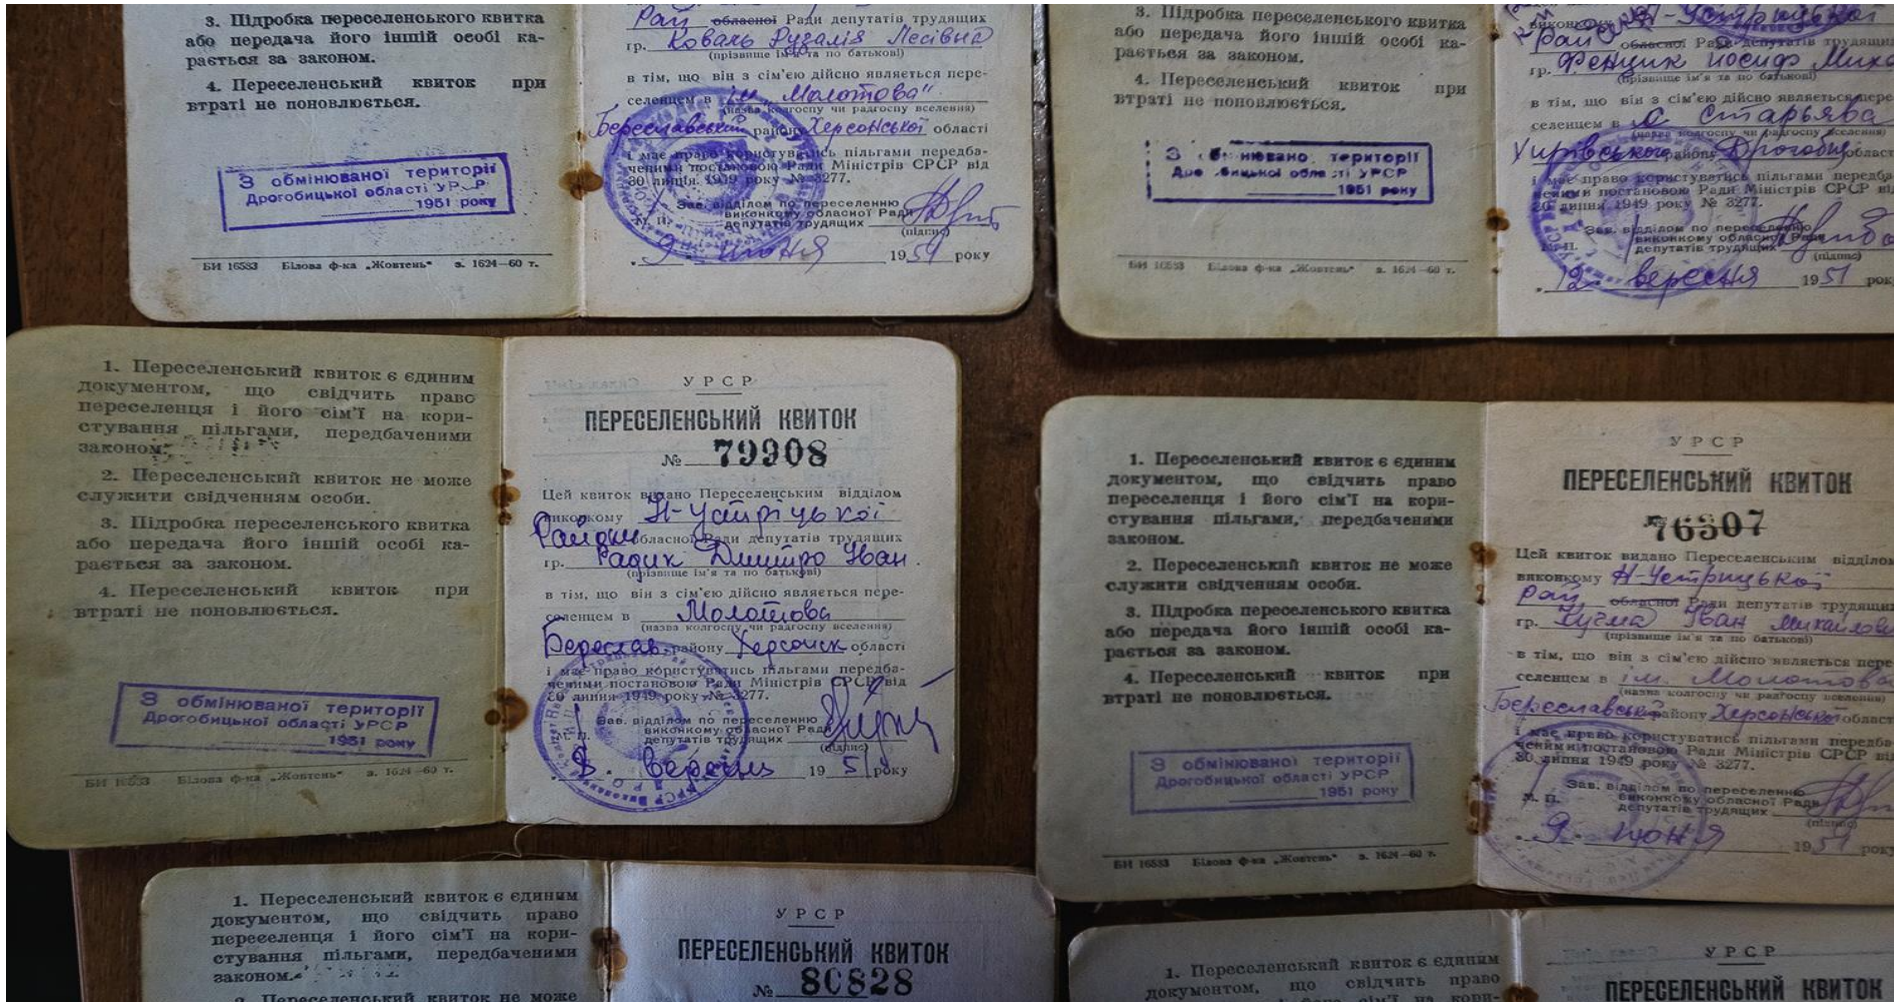 3. Підробка переселенського квитка
або передача його іншій особі ка-
рається за законом.
4. Переселенський квиток при
втраті не поновлюється.
З обмінюваної території
Дрогобицької області УРСР
1951 року
БИ 16583 Білова ф-ка „Жовтень“ з. 1624—60 т.
Рай обласної Ради депутатів трудящих
гр. Коваль Рузалія Лесівна
(прізвище ім'я та по батькові)
в тім, що він з сім'єю дійсно являється пере-
селенцем в ім. „Молотова“
(назва колгоспу чи радгоспу вселення)
Береславський району Херсонської області
і має право користуватись пільгами передба-
ченими постановою Ради Міністрів СРСР від
30 липня 1949 року № 3277.
Зав. відділом по переселенню
виконкому обласної Ради
М. П. депутатів трудящих
(підпис)
9 июня 1951 року
3. Підробка переселенського квитка
або передача його іншій особі ка-
рається за законом.
4. Переселенський квиток при
втраті не поновлюється.
З обмінюваної території
Дрогобицької області УРСР
1951 року
БИ 16583 Білова ф-ка „Жовтень“ з. 1624—60 т.
виконкому Н-Устрицької
Рай обласної Ради депутатів трудящих
гр. Фенцик Иосиф Миха
(прізвище ім'я та по батькові)
в тім, що він з сім'єю дійсно являється пере
селенцем в с. Старьява
(назва колгоспу чи радгоспу вселення)
Хирівського району Дрогобиц област
і має право користуватись пільгами передба
ченими постановою Ради Міністрів СРСР від
30 липня 1949 року № 3277.
Зав. відділом по переселенню
виконкому обласної Ради
М. П. депутатів трудящих
(підпис)
12 вересня 1951 рок
1. Переселенський квиток є єдиним
документом, що свідчить право
переселенця і його сім'ї на кори-
стування пільгами, передбаченими
законом.
2. Переселенський квиток не може
служити свідченням особи.
3. Підробка переселенського квитка
або передача його іншій особі ка-
рається за законом.
4. Переселенський квиток при
втраті не поновлюється.
З обмінюваної території
Дрогобицької області УРСР
1951 року
БИ 16583 Білова ф-ка „Жовтень“ з. 1624—60 т.
УРСР
ПЕРЕСЕЛЕНСЬКИЙ КВИТОК
№ 79908
Цей квиток видано Переселенським відділом
виконкому Н-Устріцької
Райони обласної Ради депутатів трудящих
гр. Радик Дмитро Іван.
(прізвище ім'я та по батькові)
в тім, що він з сім'єю дійсно являється пере-
селенцем в Молотова
(назва колгоспу чи радгоспу вселення)
Береслав. району Херсонск області
і має право користуватись пільгами передба-
ченими постановою Ради Міністрів СРСР від
30 липня 1949 року № 3277.
Зав. відділом по переселенню
виконкому обласної Ради
М. П. депутатів трудящих
(підпис)
8. вересня 1951 року
1. Переселенський квиток є єдиним
документом, що свідчить право
переселенця і його сім'ї на кори-
стування пільгами, передбаченими
законом.
2. Переселенський квиток не може
служити свідченням особи.
3. Підробка переселенського квитка
або передача його іншій особі ка-
рається за законом.
4. Переселенський квиток при
втраті не поновлюється.
З обмінюваної території
Дрогобицької області УРСР
1951 року
БИ 16583 Білова ф-ка „Жовтень“ з. 1624—60 т.
УРСР
ПЕРЕСЕЛЕНСЬКИЙ КВИТОК
№ 76307
Цей квиток видано Переселенським відділом
виконкому Н-Устрицької
Рай обласної Ради депутатів трудящих
гр. Кучма Іван Михайлови
(прізвище ім'я та по батькові)
в тім, що він з сім'єю дійсно являється пере
селенцем в ім. Молотова
(назва колгоспу чи радгоспу вселення)
Береславський району Херсонської област
і має право користуватись пільгами передба
ченими постановою Ради Міністрів СРСР від
30 липня 1949 року № 3277.
Зав. відділом по переселенню
виконкому обласної Ради
М. П. депутатів трудящих
(підпис)
9. июня 1951 року
1. Переселенський квиток є єдиним
документом, що свідчить право
переселенця і його сім'ї на кори-
стування пільгами, передбаченими
законом.
2. Переселенський квиток не може
УРСР
ПЕРЕСЕЛЕНСЬКИЙ КВИТОК
№ 80828
1. Переселенський квиток є єдиним
документом, що свідчить право
УРСР
ПЕРЕСЕЛЕНСЬКИЙ КВИТОК